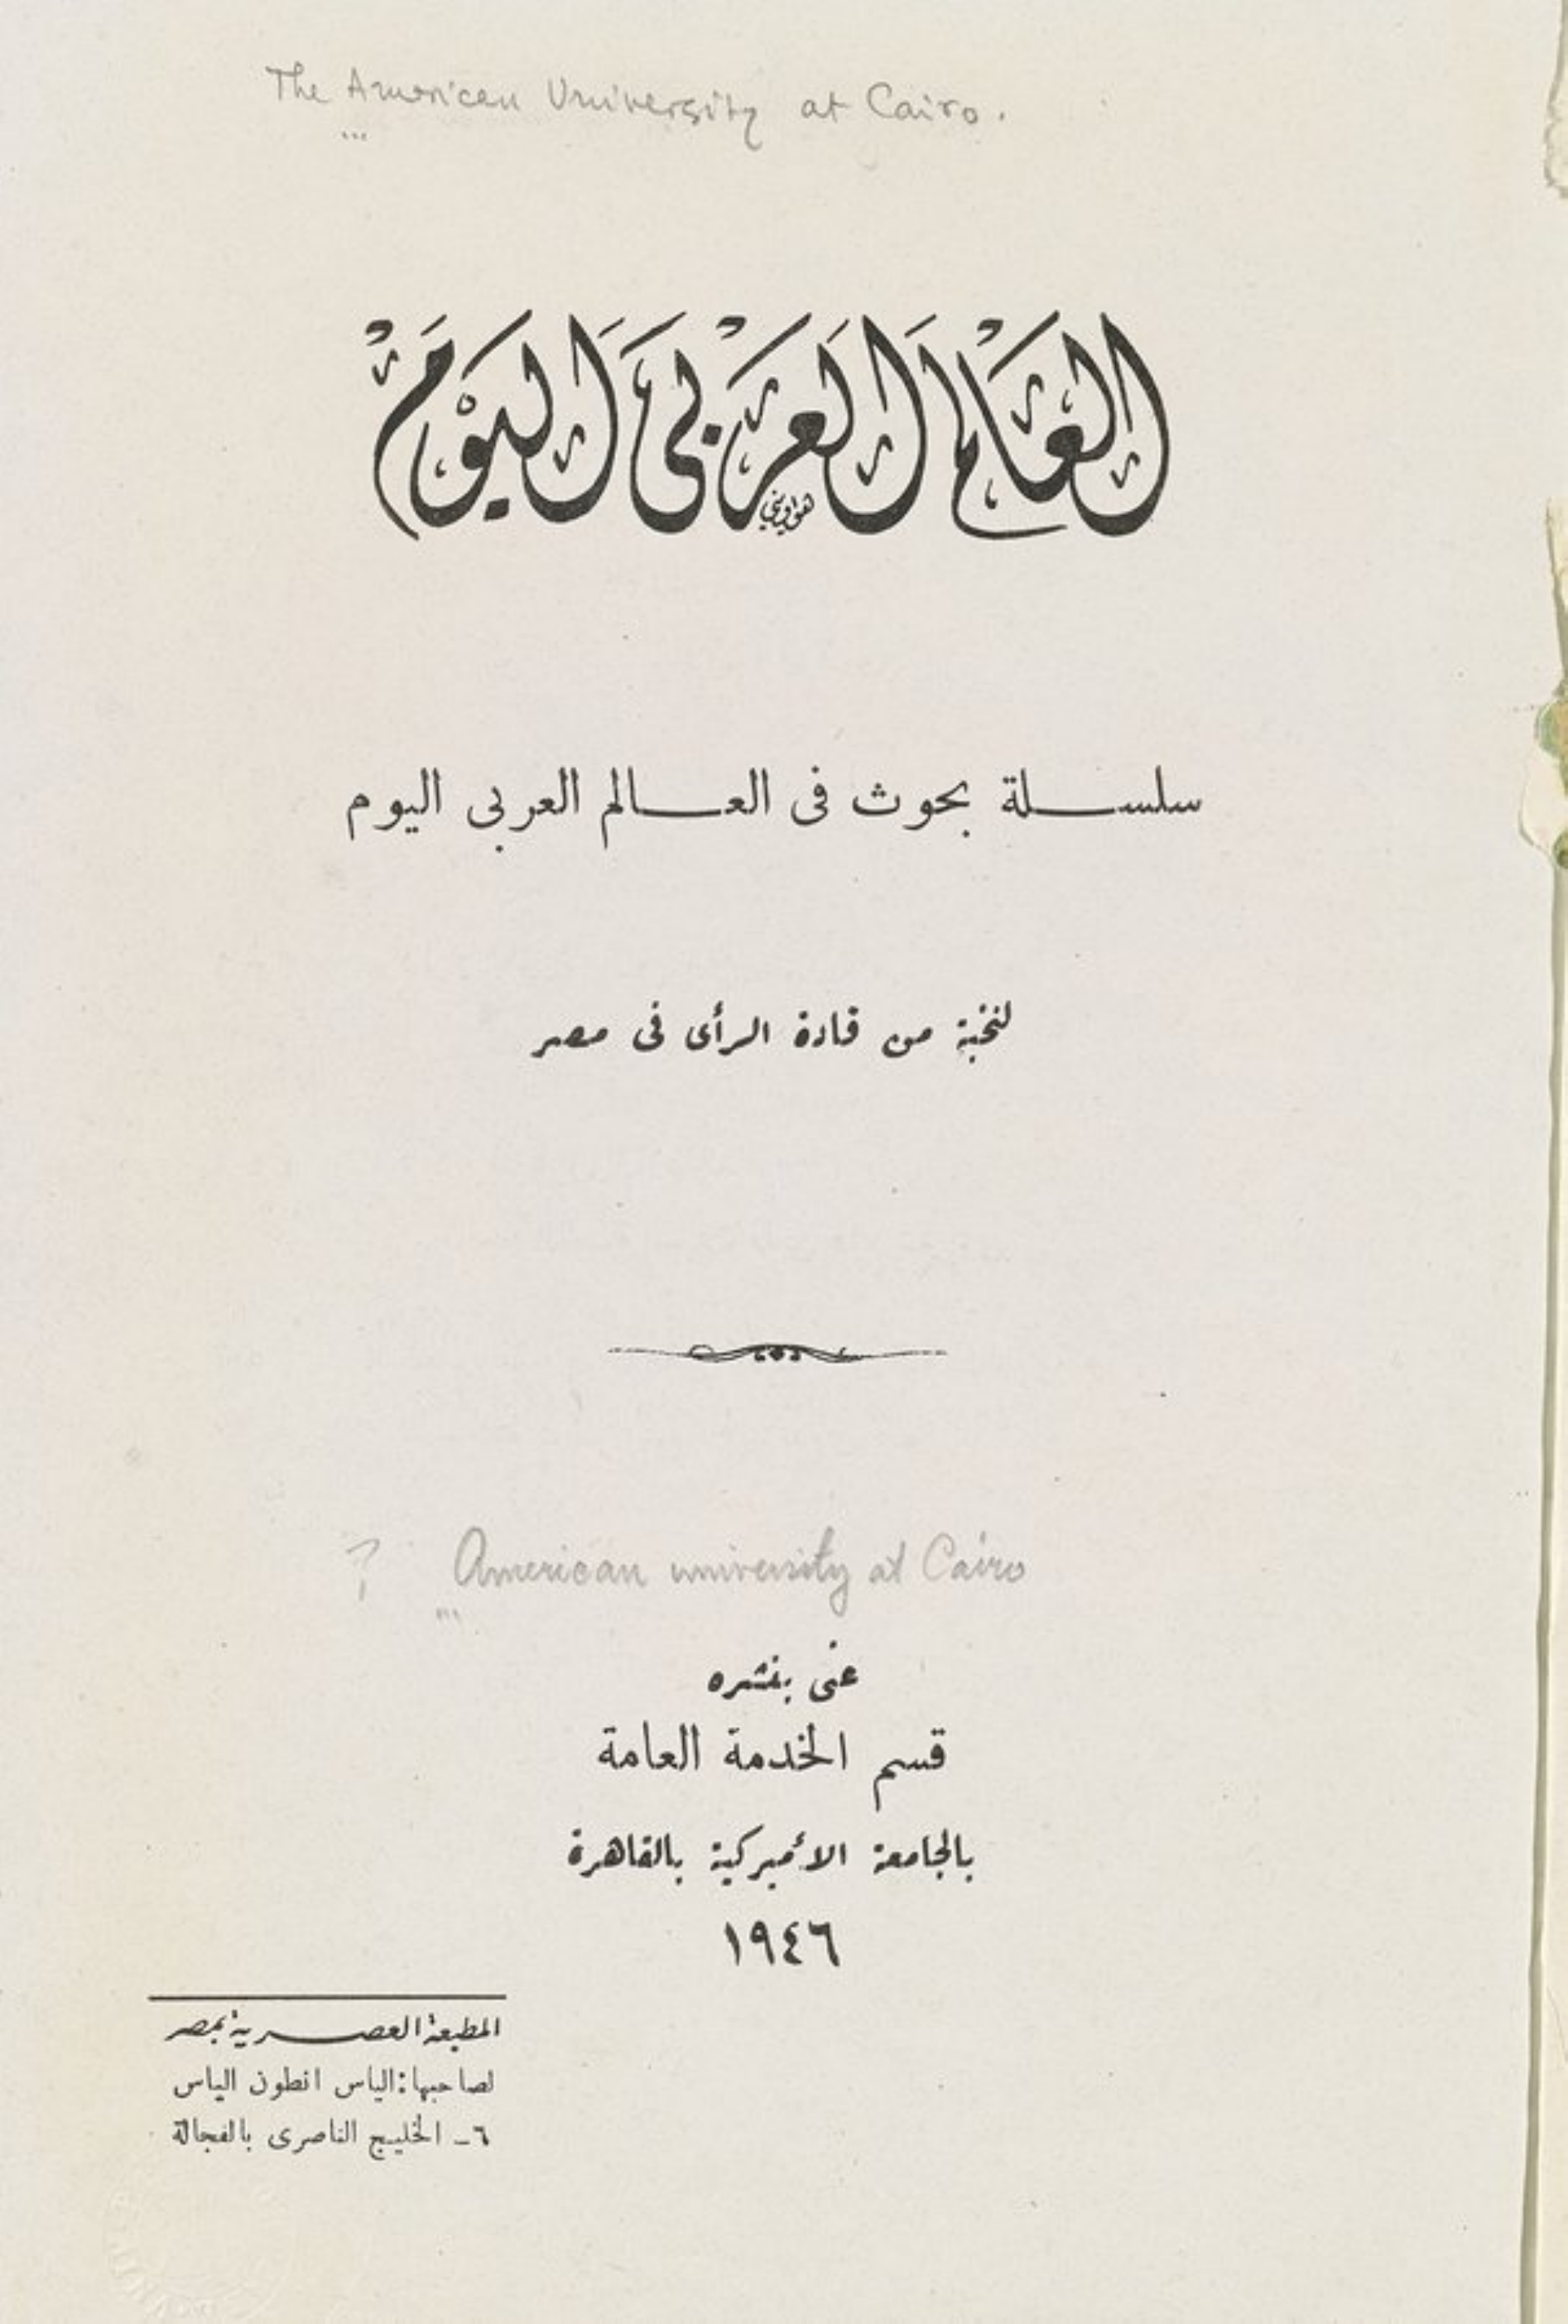 The American University at Cairo.
العالم العربى اليوم
هواوينى
سلسلة بحوث فى العالم العربى اليوم
لنخبة من قادة الرأى فى مصر
? American university at Cairo
عنى بنشره
قسم الخدمة العامة
بالجامعة الأميركية بالقاهرة
١٩٤٦
المطبعة العصرية بمصر
لصاحبها: الياس انطون الياس
٦ ـ الخليج الناصرى بالفجالة